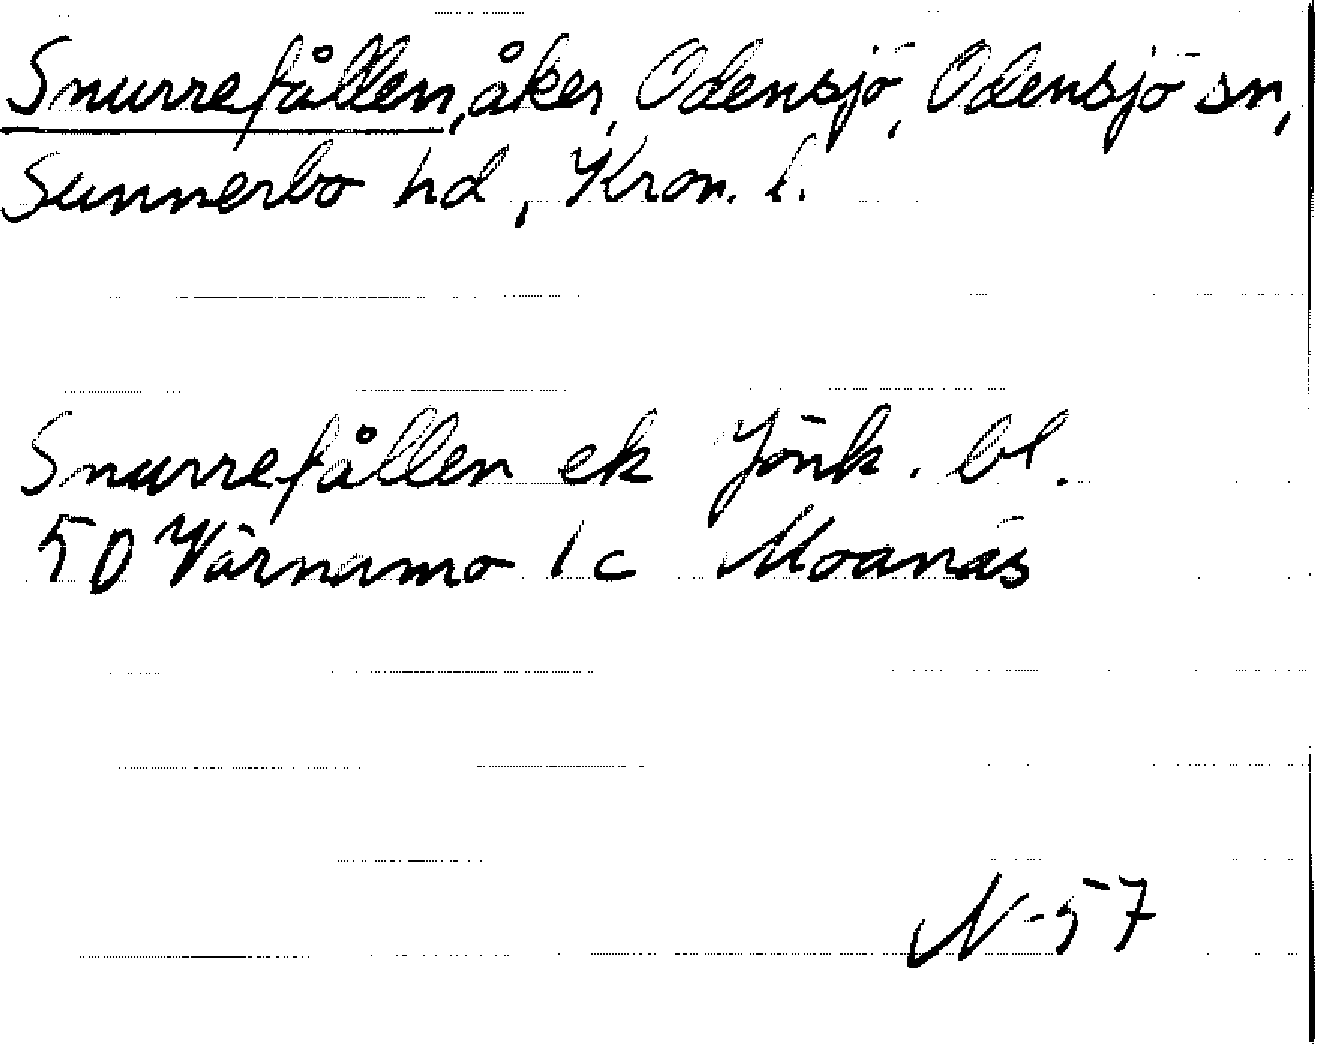 Snurrefållen, åker, Odensjö, Odensjö sn,
Sunnerbo hd, Kron. l.
Snurrefållen ek Jönk. bl.
50 Värnamo 1 c Moanäs
N-57